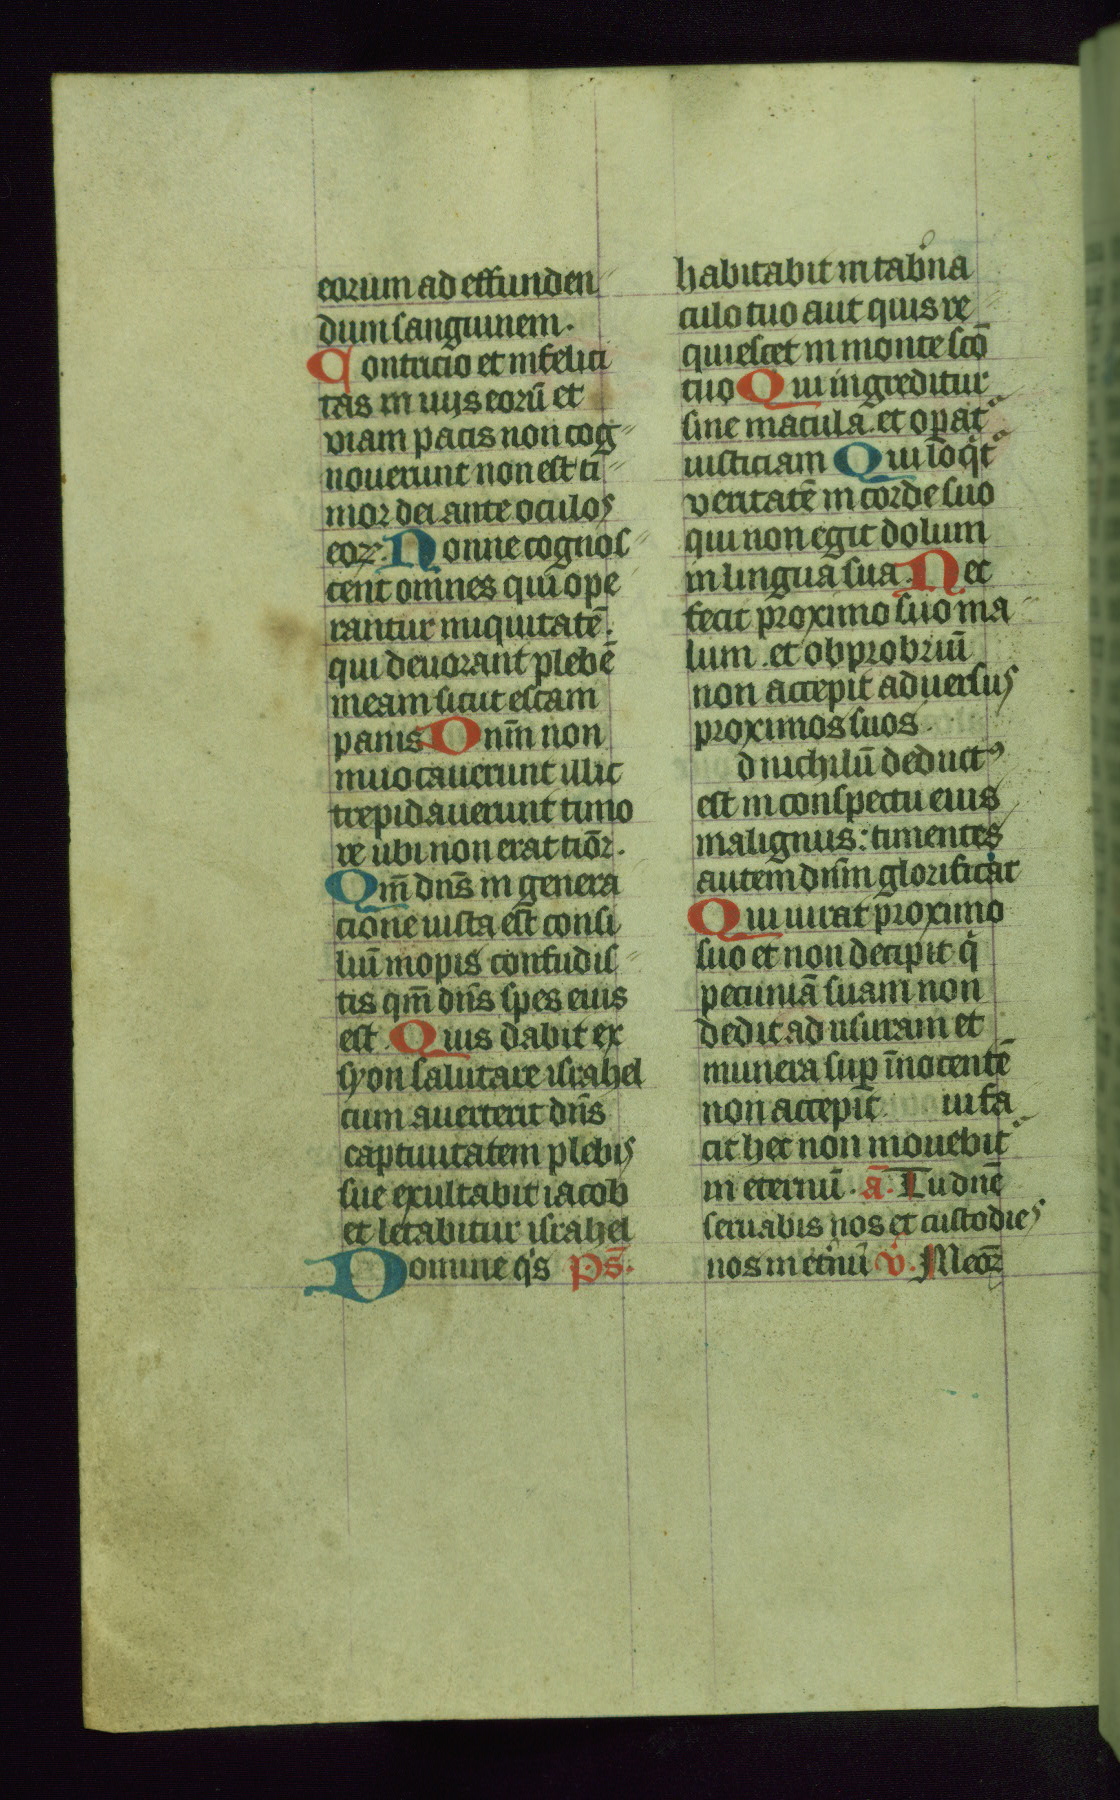 eorum ad effunden
dum sanguinem.
Contricio et infelici
tas in uijs eorū et
viam pacis non cog
nouerunt non est ti
mor dei ante oculos
eoꝝ. Nonne cognos
cent omnes qui ope
rantur iniquitatē:
qui deuorant plebē
meam sicut escam
panis Dnm̄ non
inuocauerunt illic
trepidauerunt timo
re ubi non erat tiōr.
Qm̄ dn̄s in genera
cione iusta est consi
liū inopis confudis
tis qm̄ dn̄s spes eius
est. Quis dabit ex
syon salutare israhel
cum auerterit dn̄s
captiuitatem plebis
sue exultabit iacob
et letabitur israhel
Domine q̇s p̄s.
habitabit in tab̉na
culo tuo aut quis re
quiescet in monte scō
tuo Qui ingreditur
sine macula et oꝑat
iusticiam Qui loq̇t
veritatē in corde suo
qui non egit dolum
in lingua sua. Nec
fecit proximo suo ma
lum. et obprobriū
non accepit aduersus
proximos suos.
d nichilū deductꝰ
est in conspectu eius
malignus: timentes
autem dn̄m glorificat
Qui iurat proximo
suo et non decipit q̇
pecuniā suam non
dedit ad usuram et
munera suꝑ īnocentē
non accepit ui fa
cit hec non mouebit
in eternū. ā. Tu dn̄e
seruabis nos et custodies
nos in et̉nū v̉. Meoꝝ